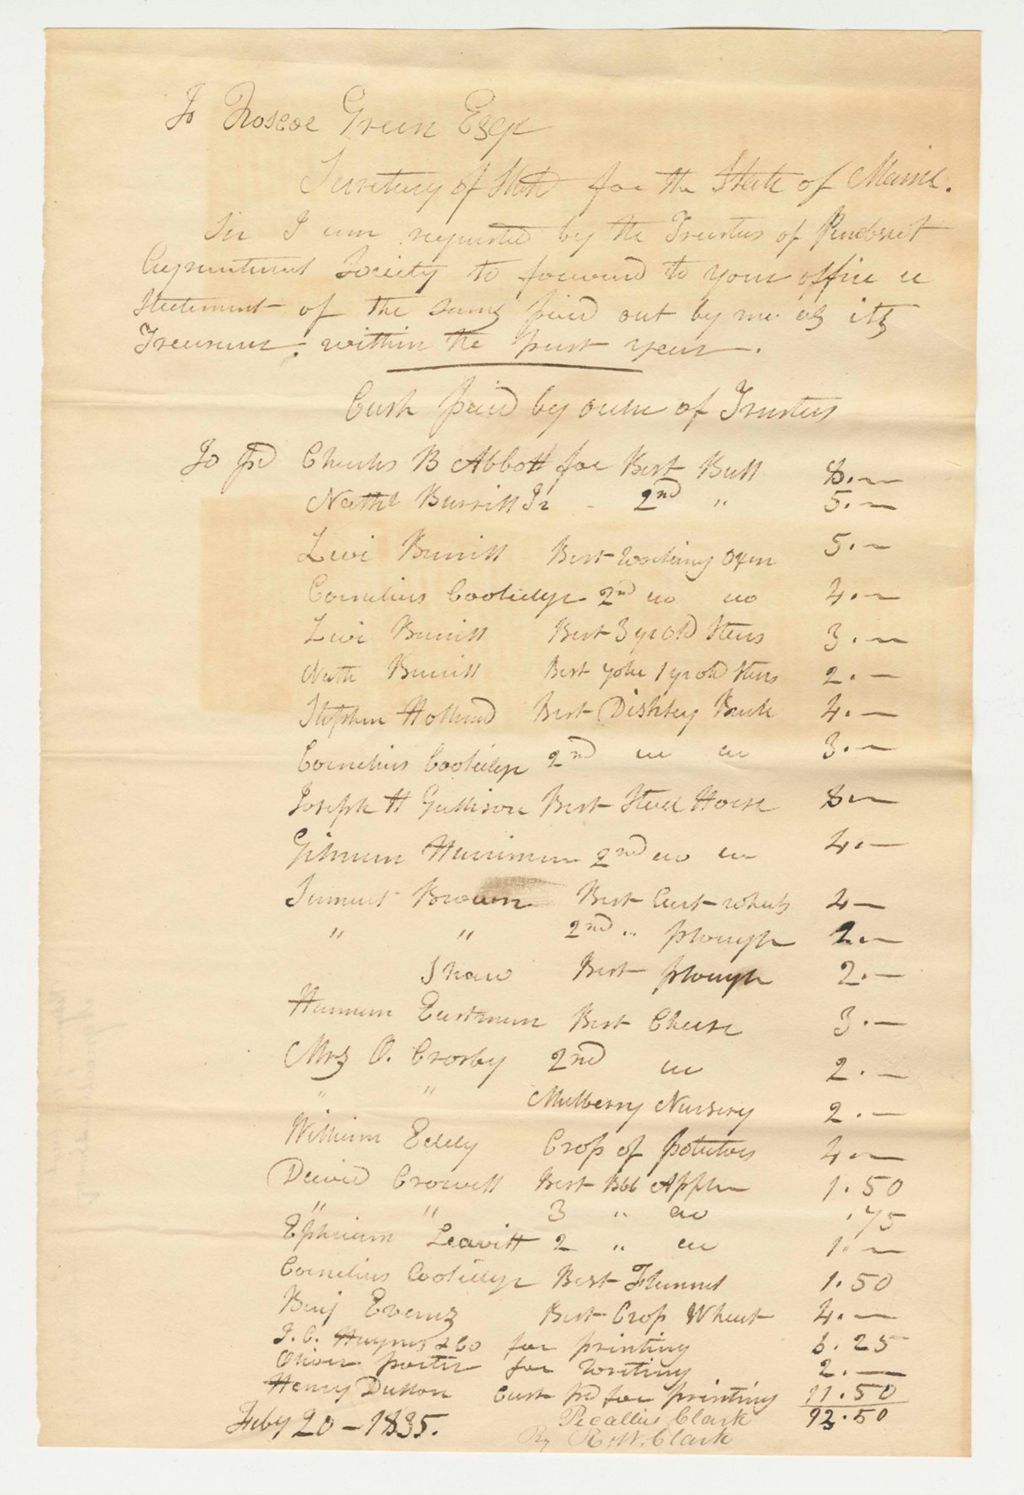 To Roscoe Green Esqr
Secretary of State for the State of Maine.
Sir I am requested by the Trustees of Penobscot
Agricultural Society to forward to your office a
Statement of the sums paid out by me as its
Treasurer, within the past year.
Cash paid by order of Trustees
To pd Charles B Abbott for Best Bull 8.—
Nathl Burrill Jr - 2nd " 5.—
Levi Burrill Best working Oxen 5.—
Cornelius Coolidge 2nd do do 4.—
Levi Burrill Best 3 yr old Steers 3.—
Nath Burrill Best yoke 1 yr old Steers 2.—
Stephen Holland Best Dishley Buck 4.—
Cornelius Coolidge 2nd do do 3.—
Joseph H Gullison Best Stud Horse 8—
Gilman Harriman 2nd do do 4.—
Brown Best Cart wheels 4—
" " 2nd " plough 2.—
Shaw Best plough 2.—
Eastman Best Cheese 3.—
Mrs O. Crosby 2nd do 2.—
" " Mulberry Nursery 2.—
William Eddy Crop of potatoes 4.—
David Crowell Best Bbl Apples 1.50
" " 3 " do .75
Ephraim Leavitt 2 " do 1.—
Cornelius Coolidge Best Flannel 1.50
Benj Evans Best Crop Wheat 4.—
J. C. Haynes & Co for printing 6.25
Oliver porter for writing 2.—
Henry Dutton Cash pd for printing 11.50
93.50
Feby 20 - 1835. Clark
By R. W. Clark